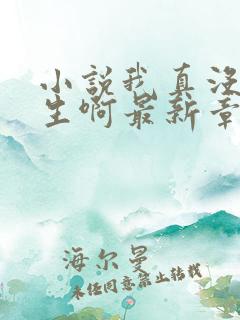 小说我真没
生啊最新章
海尔曼
未经同意禁止转载